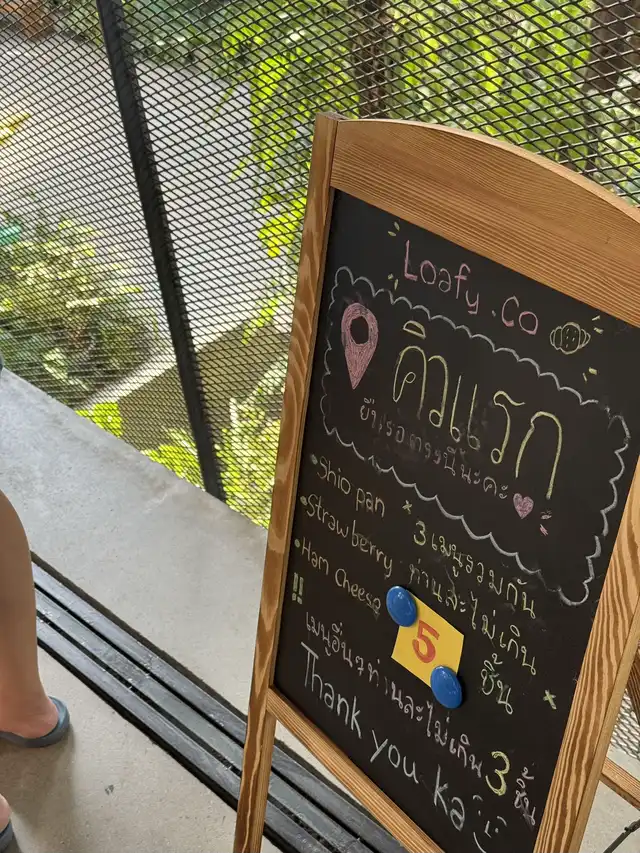 Loafy .Co
คิวแรก
ยืนรอตรงนี้นะคะ
•Shio pan
•Strawberry
•Ham Cheese
* 3 เมนูรวมกัน
ท่านละไม่เกิน
5 ชิ้น *
!! เมนูอื่นๆท่านละไม่เกิน 3 ชิ้น
Thank you ka